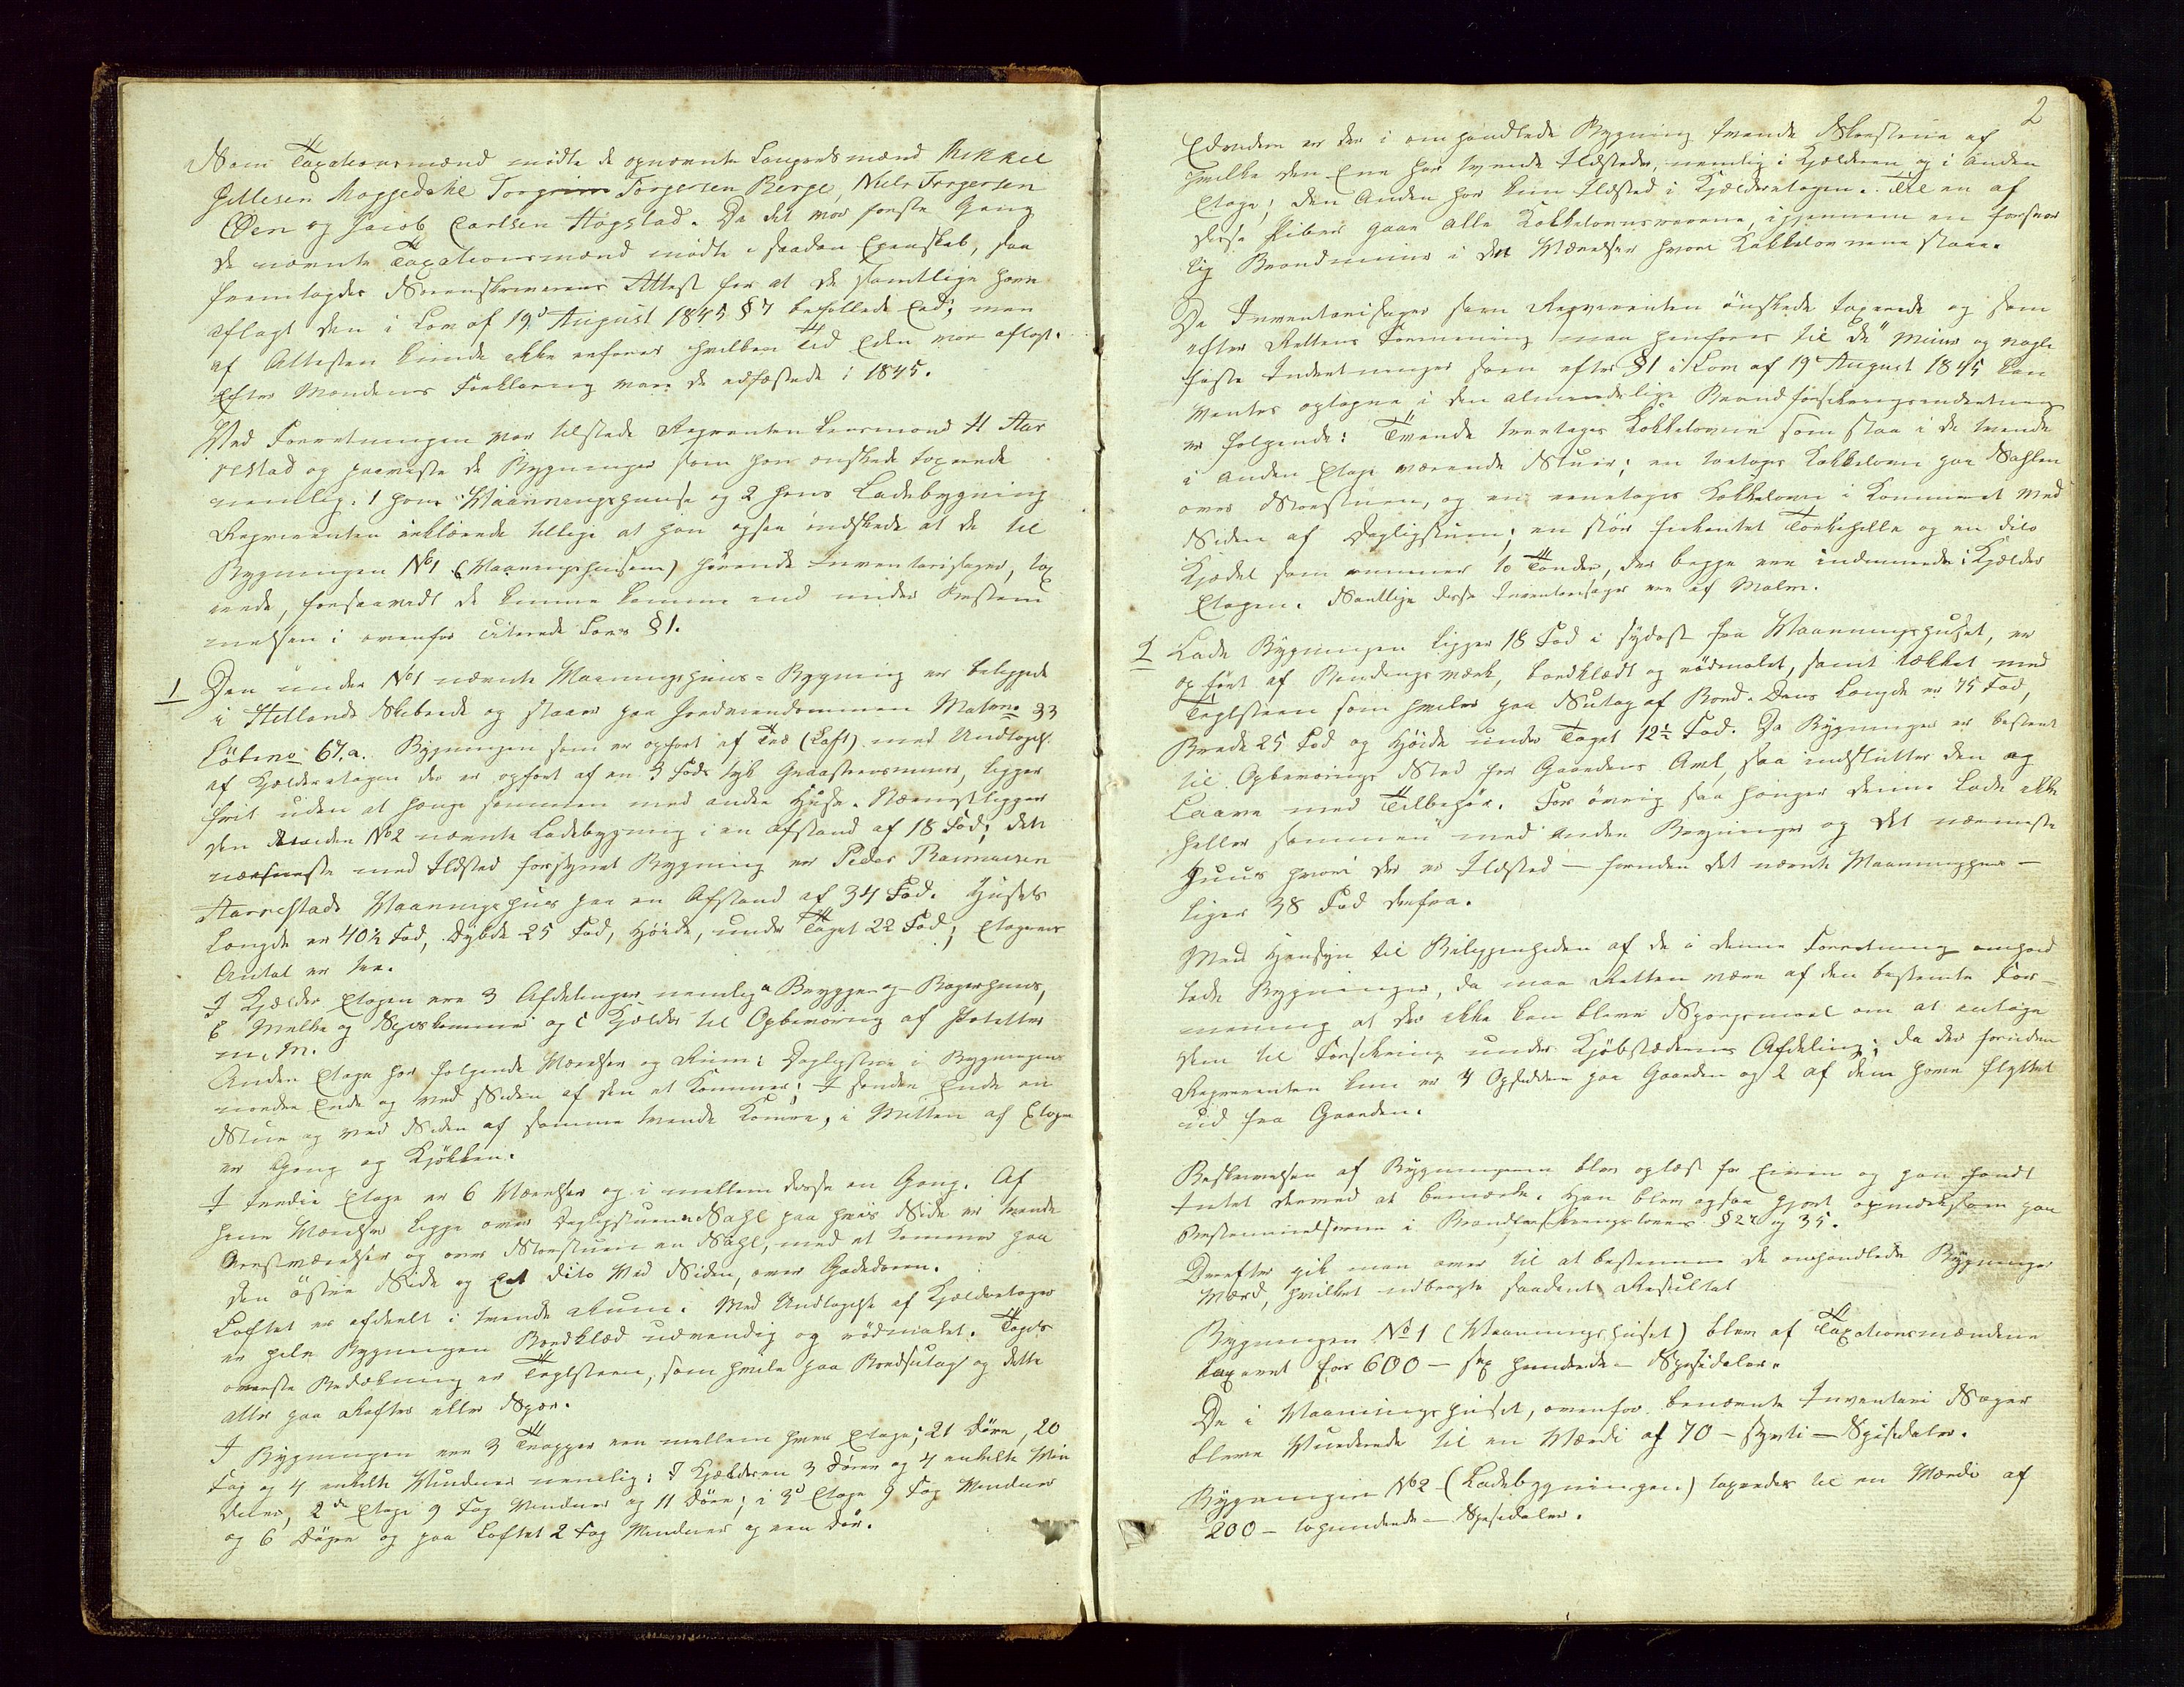 Som Taxationsmænd mødte de opnævnte Laugretsmænd Mikkel
Gittesen Moggedahl Torgrim Torgersen Berge, Niels Torgersen
Øen og Jacob Carlsen Høgstad. Da det var første Gang
de nævnte Taxationsmænd mødte i saadan Egenskab, saa
fremlagdes Sorenskriverens Attest for at de samtlige have
aflagt den i Lov af 19d August 1845 § 7 befalede Eed; men
af Attesten kunde ikke erfares hvilken Tid Eden var aflagt.
Efter Mændenes Forklaring vare de edfæstede i 1845.
Ved Forretningen var tilstede Reqventen Lensmand H Aar
restad og paaviste de Bygninger som han ønskede taxerede
nemlig: 1 hans Vaaningshuus og 2 hans Ladebygning
Reqvirenten erklærede tillige at han ogsaa ønskede at de til
Bygningen No 1 (Vaaningshuset) hørende Inventarisager, tax
erede, forsaavidt de kunne komme ind under Bestem
melsen i ovenfor citerede Lovs § 1.
1 Den under No 1 nævnte Vaaningshuus-Bygning er beliggende
i Hetlands Skibrede og staaer paa Jordeiendommen Matr. no 33
Løbeno 67. a. Bygningen som er opført af Træ (Laft) med Undtagelse
af Kjælderetagen der er opført af en 3 Fods tyk Graasteensmuur, ligger
frit uden at hænge sammen med andre Huse. Nærmest ligger
den under No 2 nævnte Ladebygning i en Afstand af 18 Fod; den
nærmeste med Ildsted forsynet Bygning er Peder Rasmusen
Aarrestads Vaaningshuus paa en Afstand af 34 Fod. Husets
Længde er 40½ Fod, Dybde 25 Fod, Høide, under Taget 22 Fod; Etagernes
Antal er tre.
I Kjælder Etagen ere 3 Afdelinger nemlig a Brygge og Bagerhuus,
b Melke og Spiskammer og c Kjælder til Opbevaring af Poteter
m. M.
Anden Etage har følgende Værelser og Rum: Dagligstue i Bygningens
nordre Ende og ved Siden af den et Kammer; I søndre Ende en
Stue og ved Siden af samme tvende Kamre, i Mitten af Etagen
er Gang og Kjøkken.
I tredie Etage er 6 Værelser og i mellem disse en Gang. Af
hine Værelser ligge over Dagligstuen en Sahl paa hvis Side er tvende
Arrestværelser og over Storstuen en Sahl, med et Kammer paa
den østre Side og Eet dito Ved Siden, over Gadedøren.
Loftet er afdeelt i tvende Rum. Med Undtagelse af Kjælderetagen
er hele Bygningen Bordklæd udvendig og rødmalet. Tagets
øverste Bedækning er Teglsteen, som hvile paa Bordsutag og dette
atter paa Rafter eller Spær.
I Bygningen ere 3 Trapper een mellem hver Etage; 21 Døre, 20
Fag og 4 enkelte Vinduer nemlig: I Kjælderen 3 Døre og 4 enkelte Vin
duer, 2de Etage 9 Fag Vinduer og 11 Døre; i 3d Etage 9 Fag Vinduer
og 6 Døre og paa Loftet 2 Fag Vinduer og een Dør.
2
Endvidere er der i omhandlede Bygning tvende Skorstene af
hvilke den Ene har tvende Ildsteder, nemlig i Kjælderen og i Anden
Etage; den Anden har kun Ildsted i Kjælderetagen. Til en af
disse Piber gaae alle Kakkelovnsrørene, igjennem en forsvar
lig Brandmuur i det Værelser hvor Kakkelovnene staae.
De Inventarisager som Reqvirenten ønskede taxerede og som
efter Rettens Formening maa henføres til de " Muur og nagle
faste Indretninger som efter § 1 i Lov af 19 August 1845 kan
ventes optagne i den almindelige Brandforsikringsindretning
er følgende: Tvende treetages Kakkelovne som staa i de tvende
i anden Etage værende Stuer; en toetages Kakkelovn paa Sahlen
over Storstuen, og en eenetages Kakkelovn i Kammeret ved
Siden af Dagligstuen; en stør firkantet Tørkehelle og en dito
Kjædel som rummer to Tønder, der begge ere indmurede i Kjælder
Etagen. Samtlige disse Inventarisager ere af Malm.
2 Lade Bygningen ligger 18 Fod i sydost fra Vaaningshuset, er
op ført af Bindingsværk, bordklædt og rødmalet, samt tækket med
Teglsteen som hviler paa Sutag af Bord. Dens Længde er 75 Fod,
Brede 25 Fod og Høide under Taget 12½ Fod. Da Bygningen er bestemt
til Opbevarings Sted for Gaardens Avl, saa indslutter den og
Laave med Tilbehør. For øvrig saa hænger denne Lade ikke
heller sammen med anden Bygninger og det nærmeste
Huus hvori der er Ildsted — foruden det nævnte Vaaningshuus —
ligger 38 Fod derfra.
Med Hensyn til Beliggenheden af de i denne Forretning omhand
lede Bygninger, da maa Retten være af den bestemte For-
mening at der ikke kan blive Spørgsmaal om at antage
dem til Forsikring under Kjøbstædernes Afdeling; da der foruden
Reqvirenten kun er 4 Opsiddere paa Gaarden og 2 af dem have flyttet
ud fra Gaarden.
Beskrivelsen af Bygningerne blev oplæst for Eieren og han fandt
Intet derved at bemærke. Han blev ogsaa gjort opmærksom paa
Bestemmelserne i Brandforsikringslovens § 27 og 35.
Derefter gik man over til at bestemme de omhandlede Bygningers
Værd, hvilket udbragte saadant Resultat
Bygningen No 1 (Vaaningshuset) blev af Taxationsmændene
taxeret for 600 — sex hundrede — Spesidaler.
De i Vaaningshuset, ovenfor benævnte Inventari Sager
bleve Vurderede til en Værdi af 70 — sytti — Spesidaler.
Bygningen No 2 (Ladebygningen) taxeredes til en Værdi af
200 — tohundrede — Spesidaler.